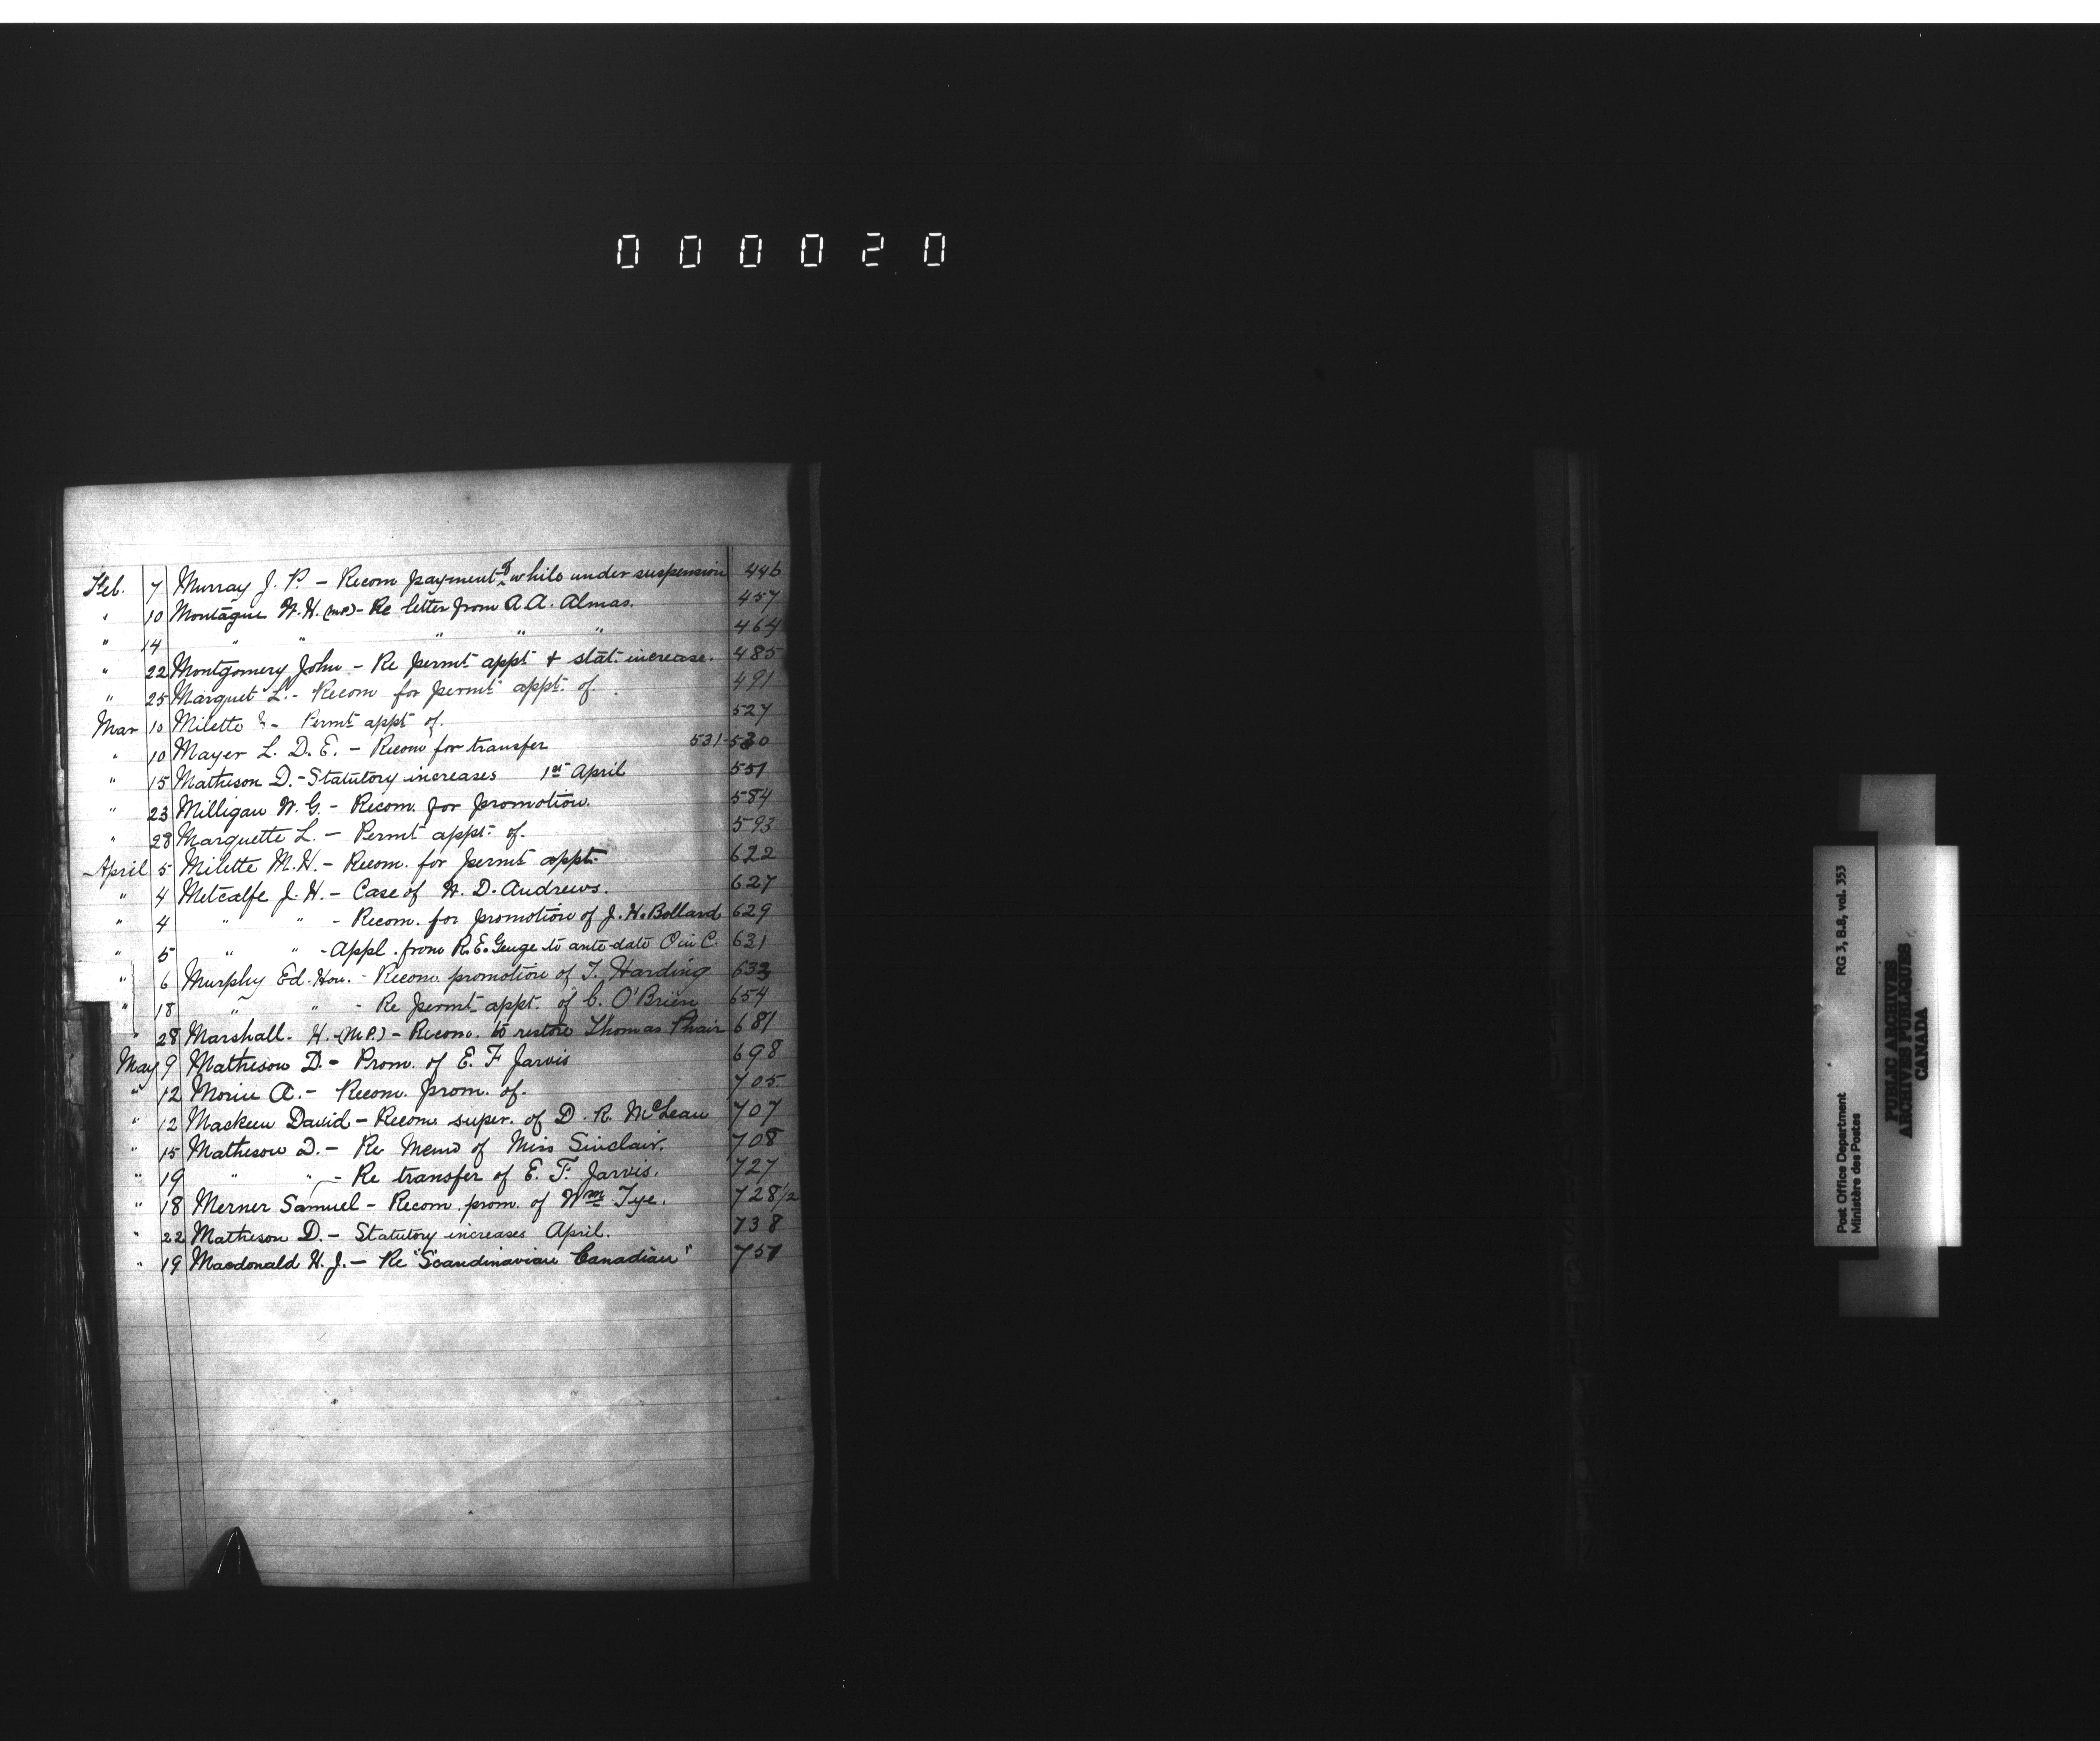 000020
Feb. 7 Murray J. P. - Recom payment of while under suspension 446
" 10 Montague W. H. (M.P.) - Re letter from A. A. Almas. 457
" 14 " " " " " 464
" 22 Montgomery John - Re permt appt & stat. increase. 485
" 25 Marquet L. - Recom for permt appt. of. 491
Mar 10 Milette - Permt appt of. 527
" 10 Mayer L. D. E. - Recom for transfer 531-530
" 15 Matheson D. - Statutory increases 1st April 551
" 23 Milligan W. G. - Recom. for promotion. 584
" 28 Marquette L. - Permt appt. of. 593
April 5 Milette M. H. - Recom. for permt appt. 622
" 4 Metcalfe J. H. - Case of H. D. Andrews. 627
" 4 " " - Recom. for promotion of J. H. Bollard 629
" 5 " " - Appl. from R. E. to ante-date O in C. 631
" 6 Murphy Ed. Hon. - Recom. promotion of T. Harding 633
" 18 " " - Re permt appt. of C. O'Brien 654
" 28 Marshall. H. (M.P.) - Recom. to restore Thomas Phair 681
May 9 Matheson D. - Prom. of E. F. Jarvis 698
" 12 Morin A. - Recom. prom. of. 705
" 12 Mackeen David - Recom. super. of D. R. McLean 707
" 15 Matheson D. - Re Memo of Miss Sinclair. 708
" 19 " " - Re transfer of E. F. Jarvis. 727
" 18 Merner Samuel - Recom. prom. of Wm Tye. 728 1/2
" 22 Matheson D. - Statutory increases April. 738
" 19 Macdonald H. J. - Re "Scandinavian Canadian" 751
Post Office Department RG 3, B.8, vol. 353
Ministère des Postes
PUBLIC ARCHIVES
ARCHIVES PUBLIQUES
CANADA